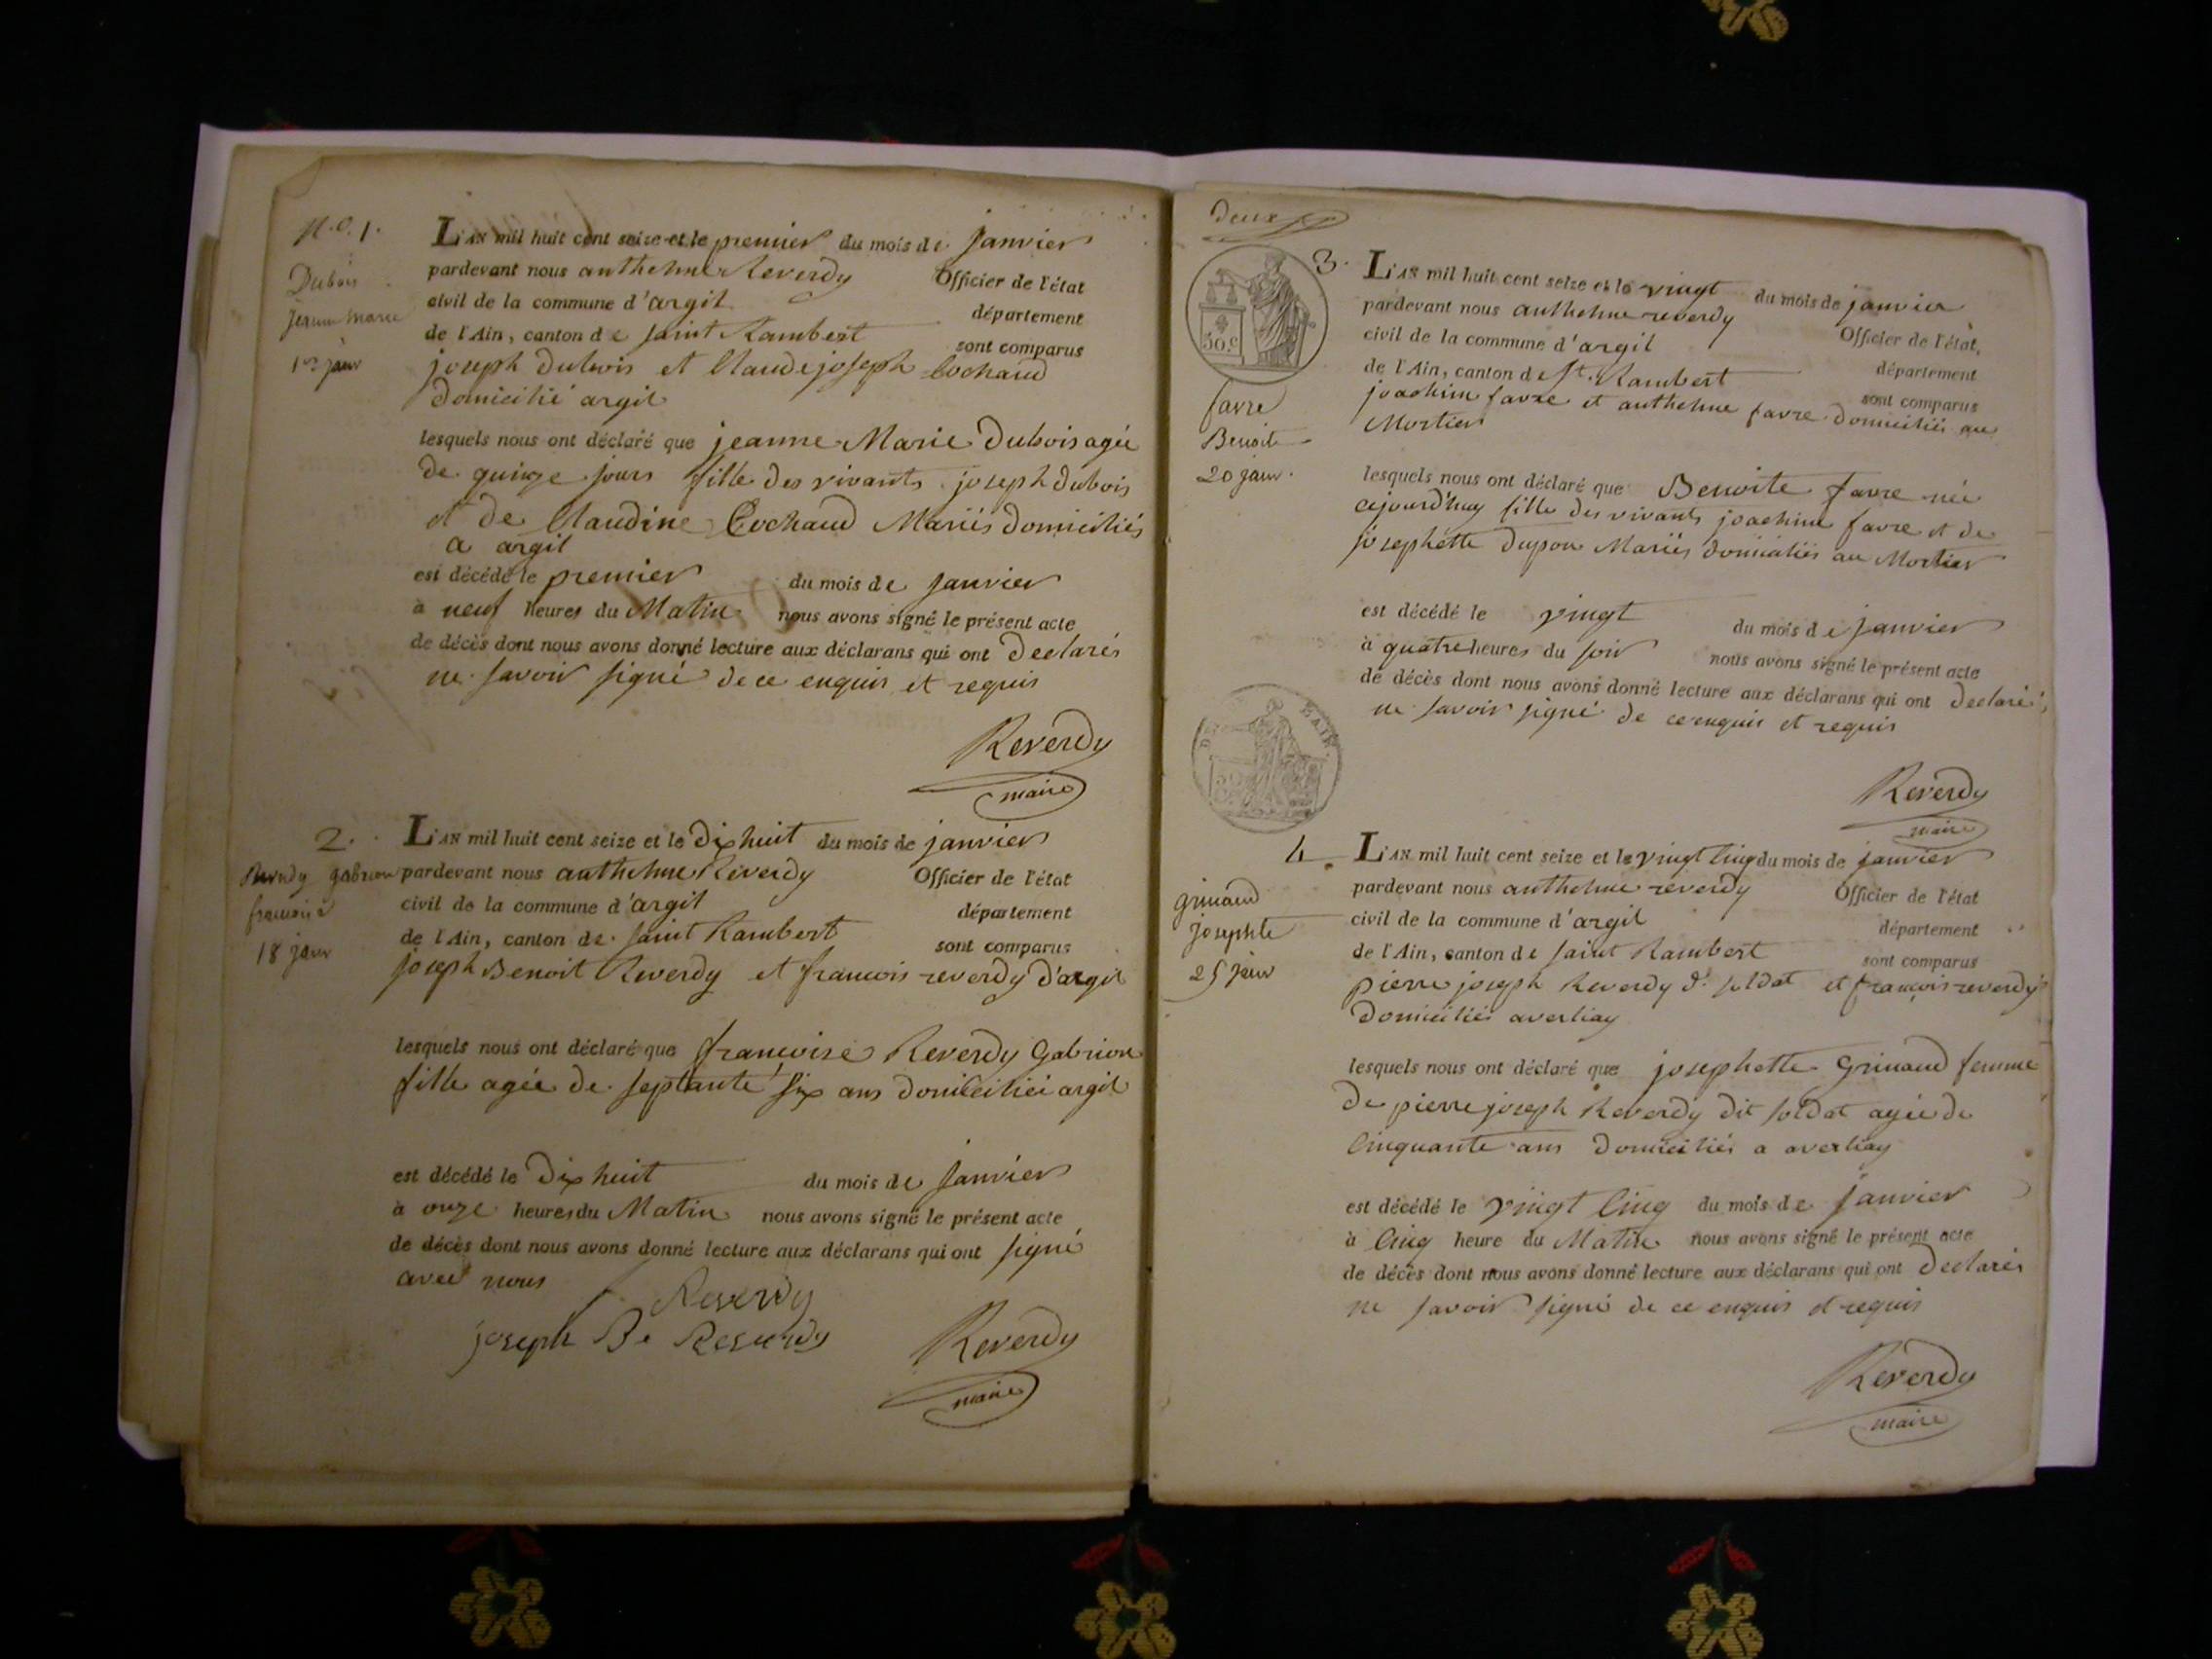 N.o. 1.
Dubois
jeanne marie
1er janv
L'AN mil huit cent seize et le premier du mois de janvier
pardevant nous anthelme Reverdy Officier de l'état
civil de la commune d'argil département
de l'Ain, canton de saint Rambert sont comparus
joseph dubois et Claude joseph Cochaud
domicilié argil
lesquels nous ont déclaré que jeanne Marie Dubois agée
de quinze jours fille des vivants joseph dubois
et de Claudine Cochaud Mariés domiciliés
a argil
est décédé le premier du mois de janvier
à neuf heures du Matin nous avons signé le présent acte
de décès dont nous avons donné lecture aux déclarans qui ont declarés
ne savoir signé de ce enquis et requis
Reverdy
maire
2.
Reverdy gabrion
francoise
18 janv
L'AN mil huit cent seize et le dix huit du mois de janvier
pardevant nous anthelme Reverdy Officier de l'état
civil de la commune d'argil département
de l'Ain, canton de saint Rambert sont comparus
joseph Benoit Reverdy et francois reverdy d'argil
lesquels nous ont déclaré que francoise Reverdy Gabrion
fille agée de septante six ans domiciliée argil
est décédé le dix huit du mois de janvier
à onze heures du Matin nous avons signé le présent acte
de décès dont nous avons donné lecture aux déclarans qui ont signé
avec nous
Reverdy
joseph Be Reverdy
Reverdy
maire
deux
30.c
3.
favre
Benoite
20 janv.
L'AN mil huit cent seize et le vingt du mois de janvier
pardevant nous anthelme reverdy Officier de l'état,
civil de la commune d'argil département
de l'Ain, canton de St. Rambert sont comparus
joachim favre et anthelme favre domiciliés au
Mortier
lesquels nous ont déclaré que Benoite favre née
cejourd'huy fille des vivants joachim favre et de
josephette dupon Mariés domiciliés au Mortier
est décédé le vingt du mois de janvier
à quatre heures du soir nous avons signé le présent acte
de décès dont nous avons donné lecture aux déclarans qui ont declarés
ne savoir signé de ce enquis et requis
Reverdy
maire
4.
grinand
josephte
25 janv
L'AN mil huit cent seize et le vingt cinq du mois de janvier
pardevant nous anthelme reverdy Officier de l'état
civil de la commune d'argil département
de l'Ain, canton de saint Rambert sont comparus
pierre joseph Reverdy dt soldat et francois reverdy
domiciliés averliay
lesquels nous ont déclaré que josephette Grinand femme
de pierre joseph Reverdy dit soldat agée de
Cinquante ans domiciliés a averliay
est décédé le vingt cinq du mois de janvier
à Cinq heure du Matin nous avons signé le présent acte
de décès dont nous avons donné lecture aux déclarans qui ont declarés
ne savoir signé de ce enquis et requis
Reverdy
maire